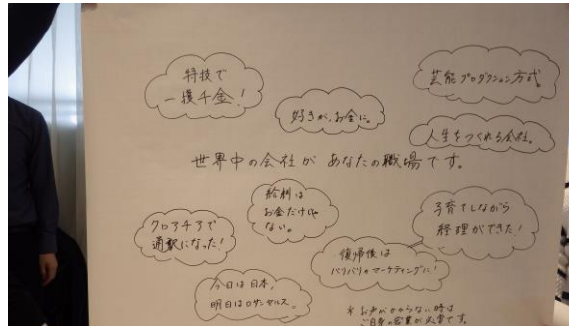 特技で
一攫千金!
好きが、お金に。
芸能プロダクション方式
人生をつくれる会社。
世界中の会社が あなたの職場です。
クロアチアで
通訳になった!
給料は
お金だけじゃ
ない。
子育てしながら
経理ができた!
復帰後は
バリバリのマーケティングに!
今日は日本、
明日はロサンゼルス。
* お声がかからない時は
ご自身の営業が必要です。